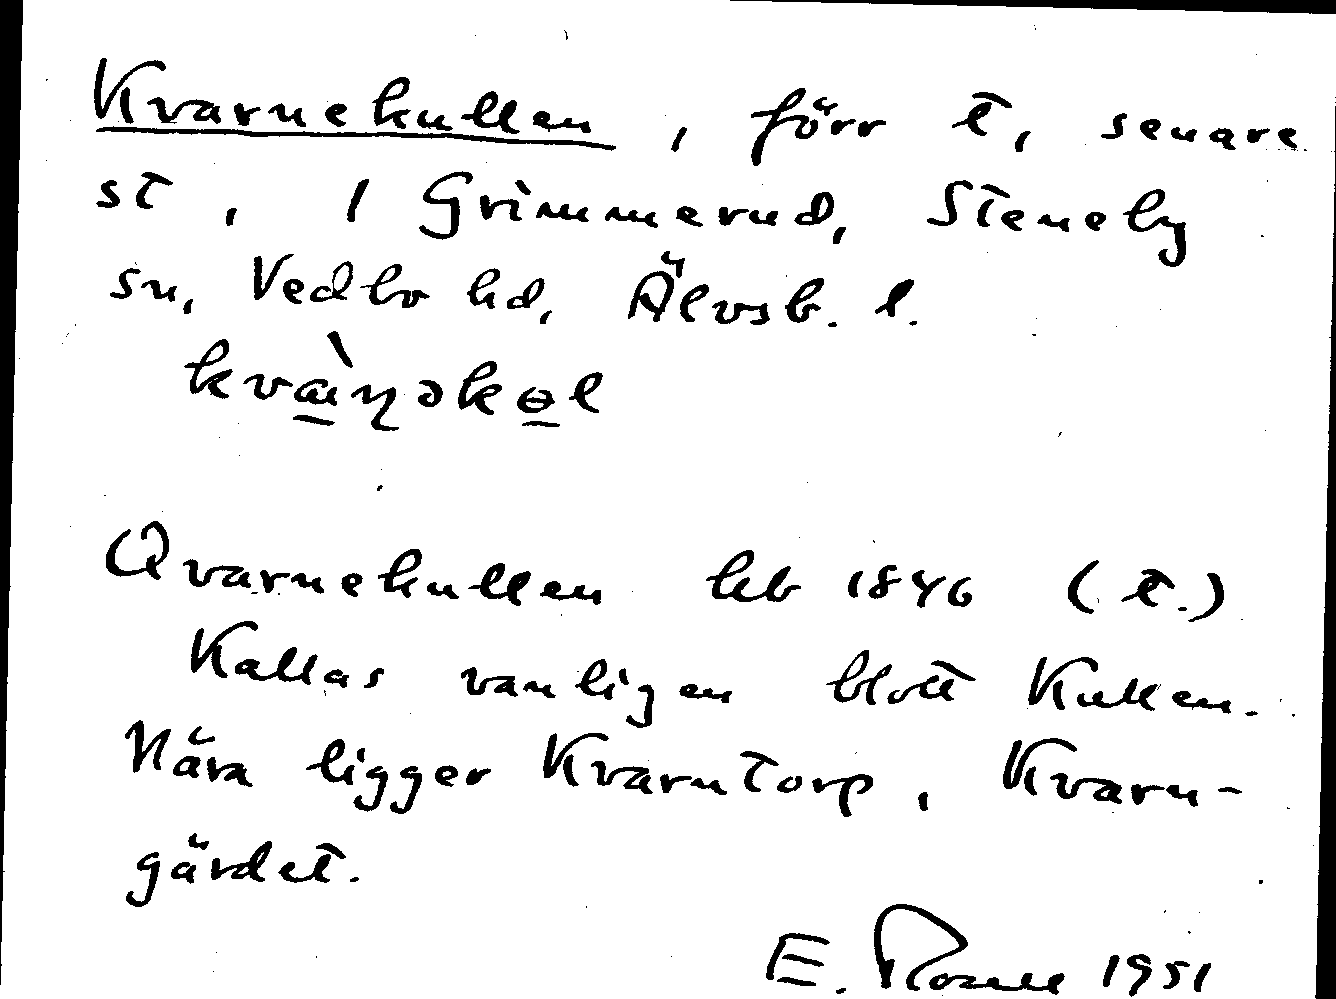 Kvarnekullen, förr t, senare
st, i Grimmerud, Steneby
sn, Vedbo hd, Älvsb. l.
kvæ̀ṇəkɵl
Qvarnekullen hb 1846 (t.)
Kallas vanligen blott Kullen.
Nära ligger Kvarntorp, Kvarn-
gärdet.
E. Rosell 1951